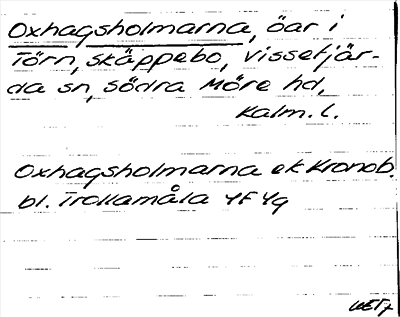 Oxhagsholmarna, öar i
Törn, Skäppebo, Vissefjär-
da sn, Södra Möre hd,
Kalm. l.
Oxhagsholmarna ek Kronob.
bl. Trollamåla 4F 4g